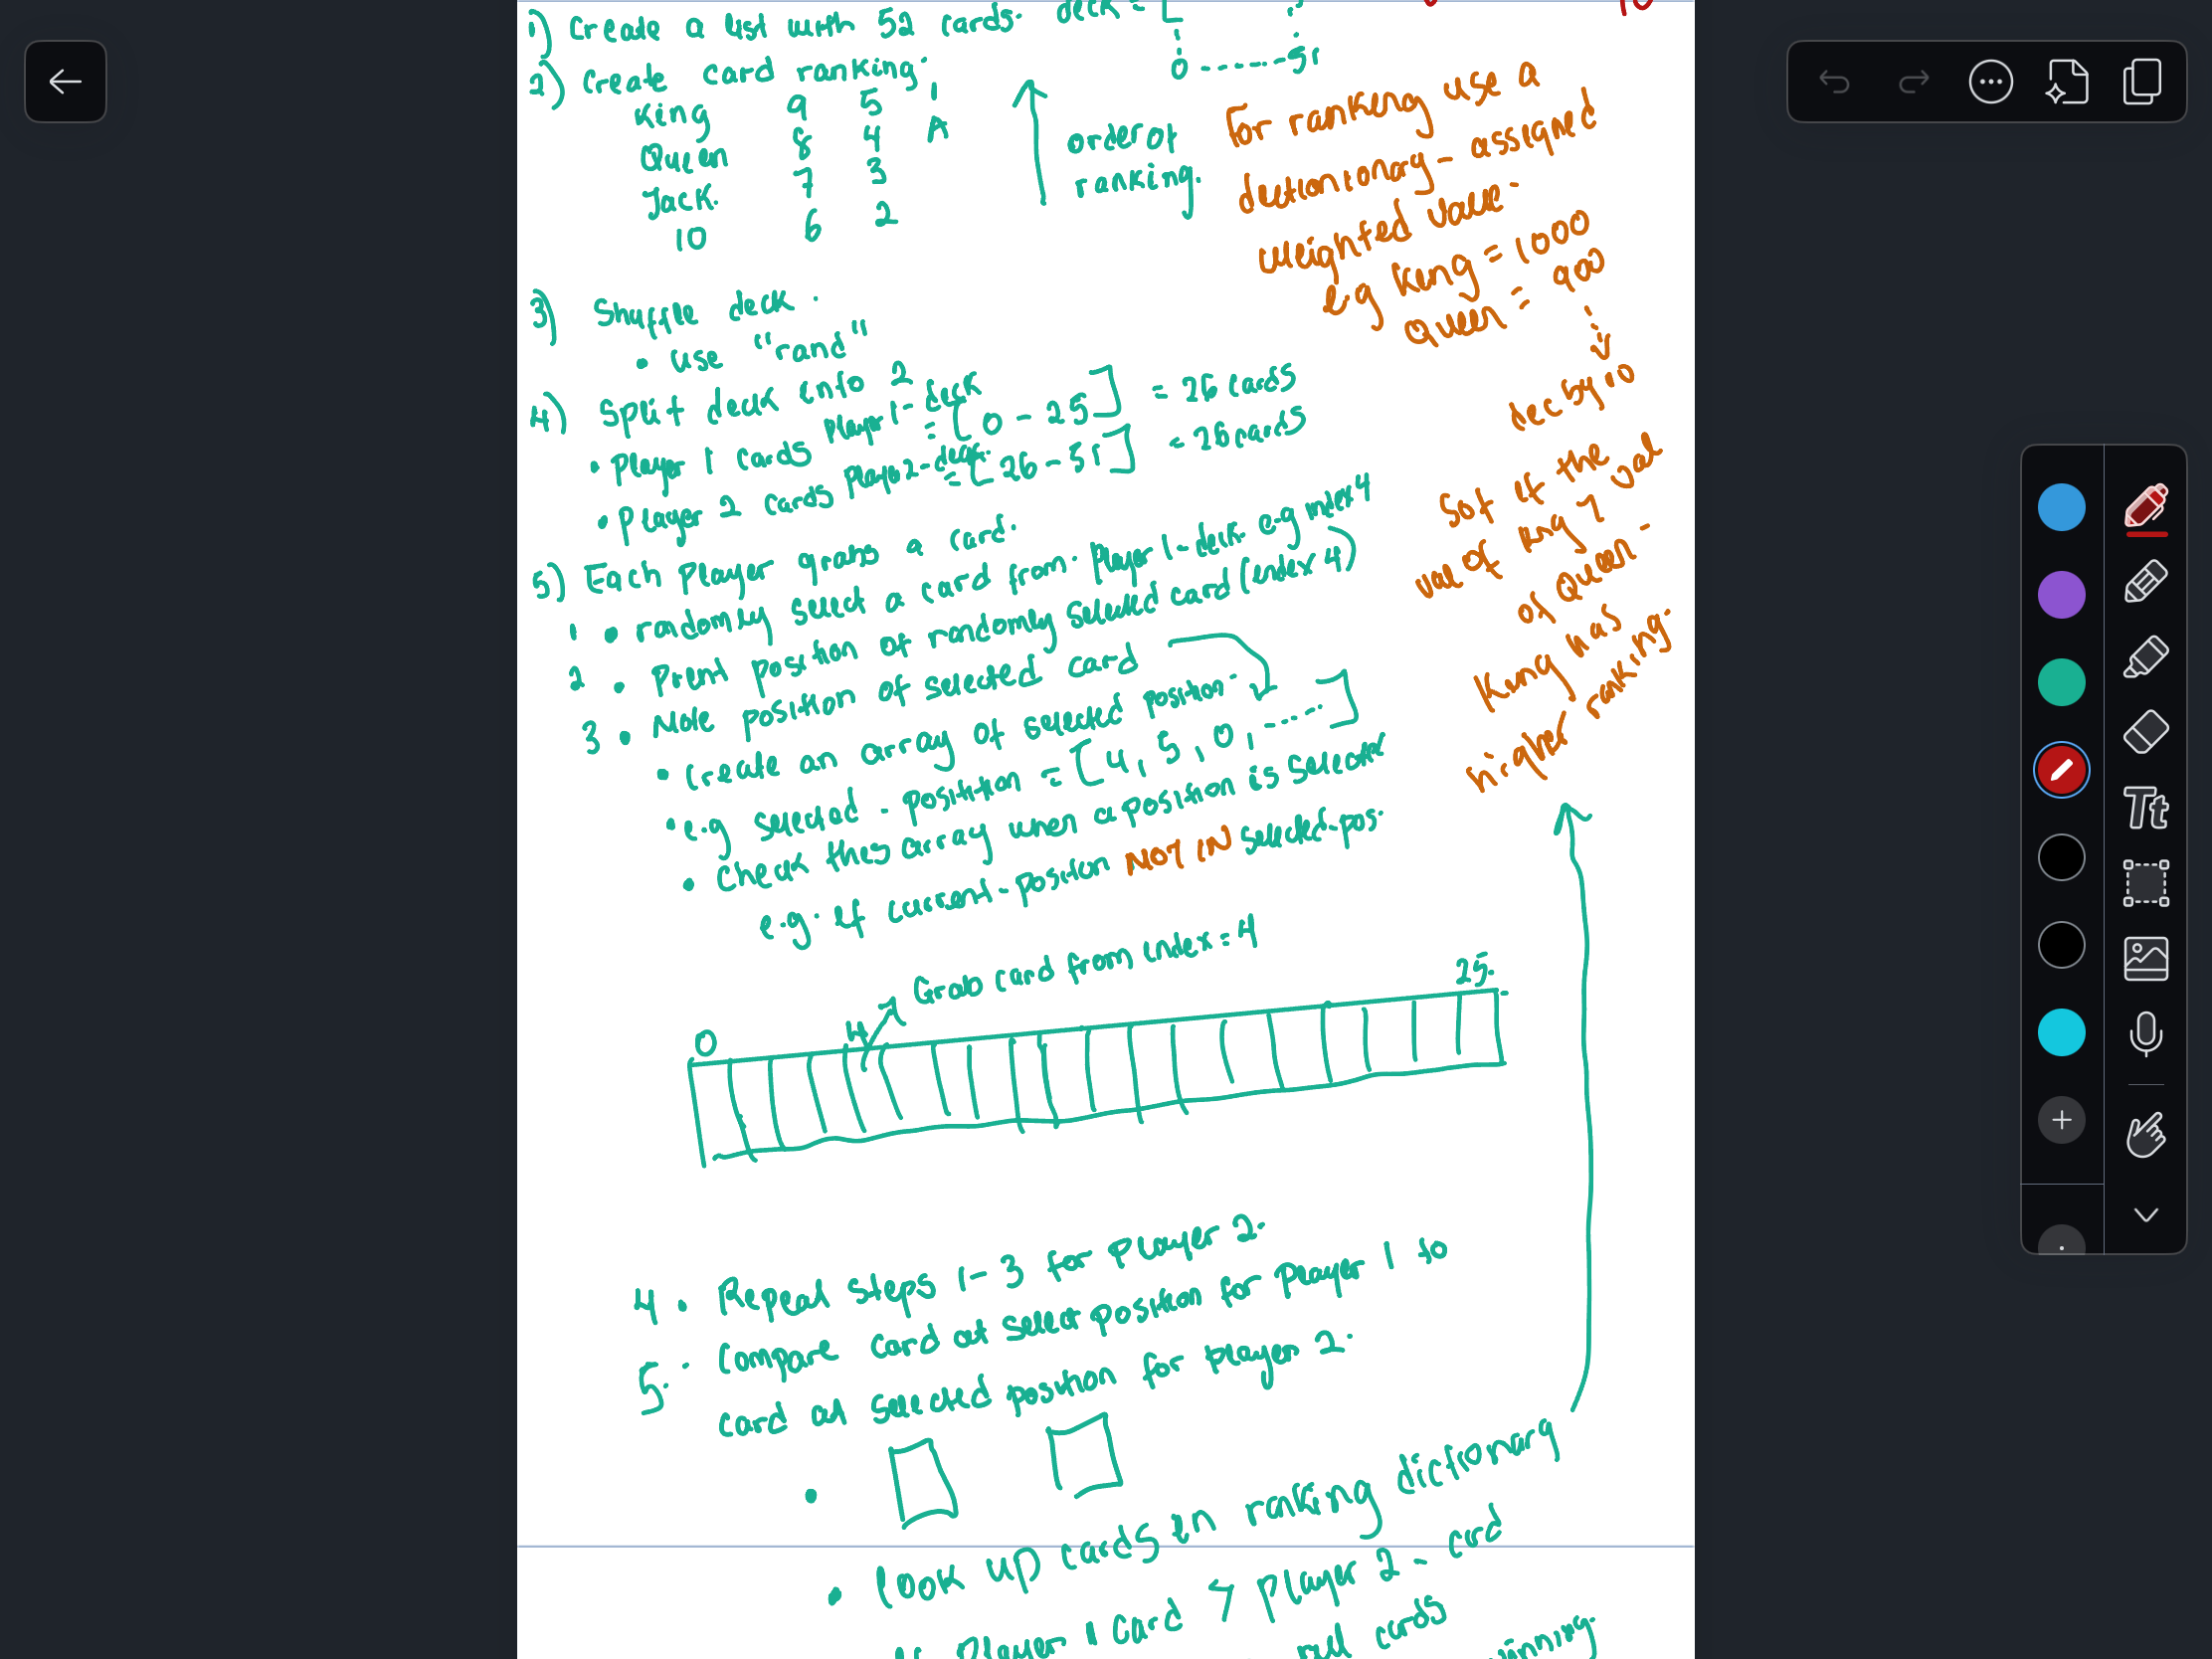 1) Create a list with 52 cards. deck = [
0 ------- 51
2) Create card ranking.
King 9 5 1
Queen 8 4 A
Jack. 7 3
10 6 2
order of
ranking.
For ranking use a
dictionary - assigned
weighted value.
e.g King = 1000
Queen = 900
dec by 10
So if the
val of King > val
of Queen -
King has
higher ranking.
3) Shuffle deck.
• use "rand"
4) Split deck into 2
• Player 1 cards player1-deck = [0 - 25] = 26 cards
• Player 2 cards player2-deck = [26 - 51] = 26 cards
5) Each player grabs a card.
1 • randomly select a card from player 1-deck e.g index 4
2 • Print position of randomly selected card (index 4)
3 • Note position of selected card
• Create an array of selected position.
• e.g selected - position = [4, 5, 0, ......]
• Check this array when a position is selected
e.g. if current-position NOT IN selected-pos.
Grab card from index = 4
0 4 25.
4 • Repeat steps 1-3 for player 2.
5. Compare card at select position for player 1 to
card at selected position for player 2.
• look up cards in ranking dictionary
Player 1 card > player 2 - card
cards
Tt